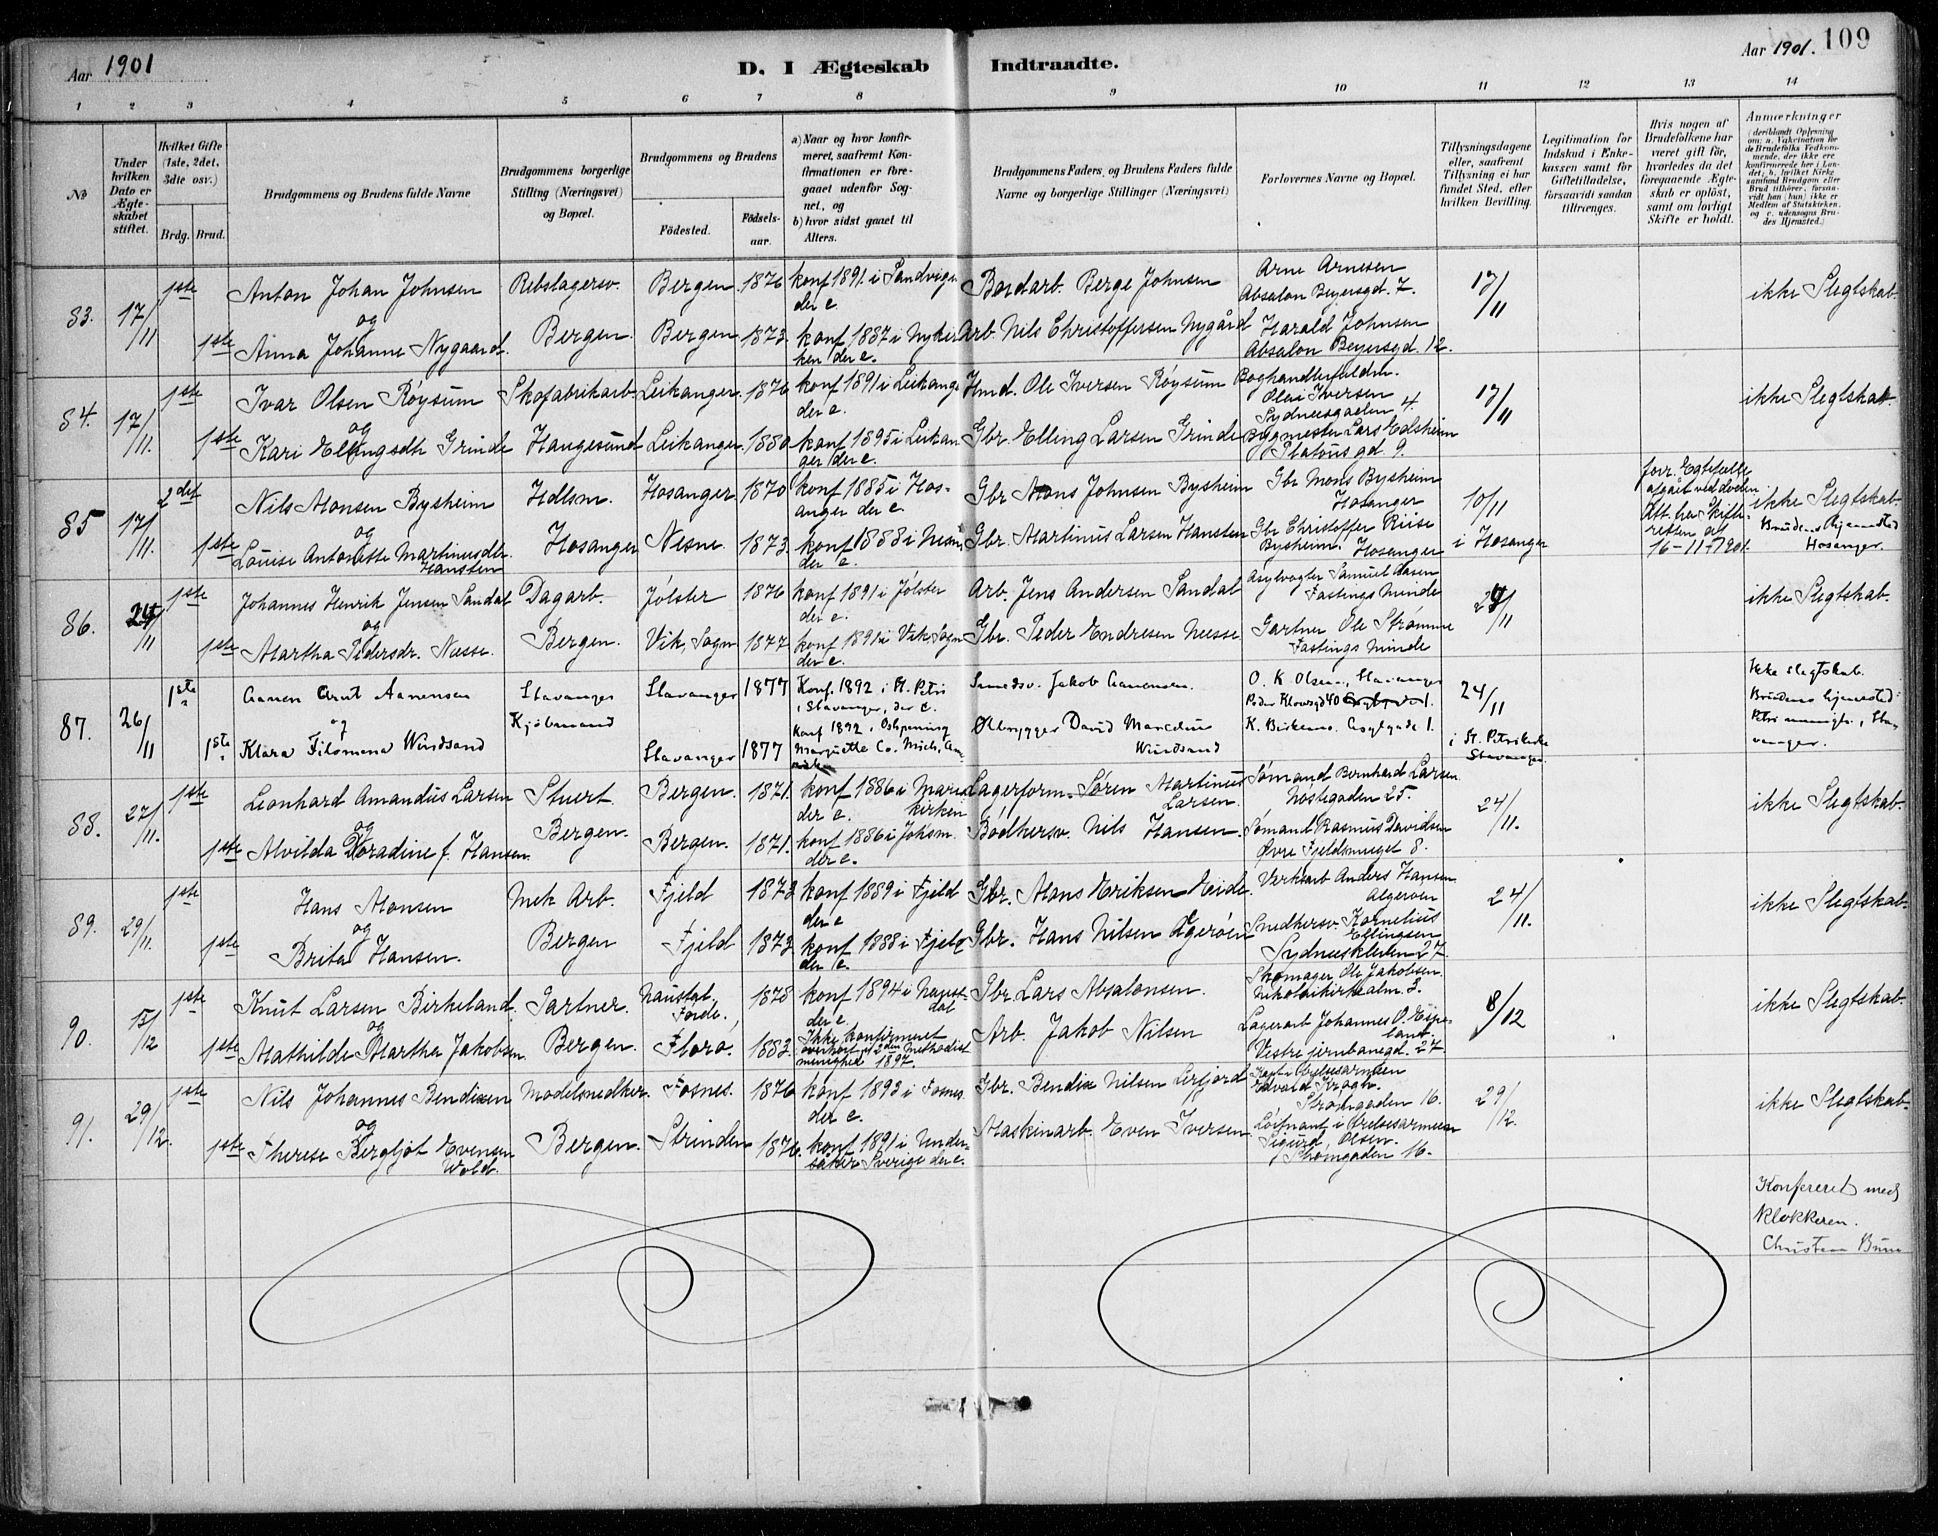 Aar 1901
D. I Ægteskab Indtraadte.
Aar 1901. 109
1 2 3 4 5 6 7 8 9 10 11 12 13 14
No
Under hvilken Dato er Ægteskabet stiftet.
Hvilket Gifte (1ste, 2det, 3die osv.)
Brdg. Brud.
Brudgommens og Brudens fulde Navne
Brudgommens borgerlige Stilling (Næringsvei) og Bopæl.
Brudgommens og Brudens
Fødested. Fødselsaar.
a) Naar og hvor konfirmeret, saafremt Konfirmationen er foregaaet udenfor Sognet, og
b) hvor sidst gaaet til Alters.
Brudgommens Faders og Brudens Faders fulde Navne og borgerlige Stillinger (Næringsvei)
Forlovernes Navne og Bopæl.
Tillysningsdagene eller, saafremt Tillysning ei har fundet Sted, efter hvilken Bevilling.
Legitimation for Indskud i Enkekassen samt for Giftetilladelse, forsaavidt saadan tiltrænges.
Hvis nogen af Brudefolkene har været gift før, hvorledes da det foregaaende Ægteskab er opløst, samt om lovligt Skifte er holdt.
Anmærkninger
(deriblandt Oplysning om: a. Vakcination for de Brudefolks Vedkommende, der ikke ere konfirmerede her i Landet; b. hvilket Kirkesamfund Brudgom eller Brud tilhører, forsaavidt han (hun) ikke er Medlem af Statskirken, og c. udensogns Brudes Hjemsted.)
83. 17/11 1ste Anton Johan Johnsen Rebslagersv. Bergen. 1876 konf 1891. i Sandvigen der e. Bordarb. Berge Johnsen Arne Arnesen Absalon Beyersgd. 7. 17/11 ikke Slegtskab.
og
1ste Anna Johanne Nygaard. Bergen. Bergen 1873. konf 1887 i Nykirken der e. Arb. Nils Christoffersen Nygård Harald Johnsen Absalon Beyersgd. 12.
84. 17/11. 1ste Ivar Olsen Röysum Skofabrikarb. Leikanger. 1876 konf 1891 i Leikanger der e. Hmd. Ole Iversen Röysum Boghandlerfuldm. Olai Iversen Sydnesgaden 4. 17/11 ikke Slegtskab.
og
1ste Kari Ellingsdtr Grinde Haugesund Leikanger. 1880 konf 1895 i Leikanger der e. Gbr. Elling Larsen Grinde Bygmester Lars Edsheim Platousgd. 9.
85 17/11. 2det Nils Monsen Bysheim Hdlsm. Hosanger. 1870 konf 1885 i Hosanger der e. Gbr Mons Johnsen Bysheim Gbr Mons Bysheim Hosanger 10/11 forr. Egtefælle afgået ved døden. Att. her Skifteretten af 16-11-1901. ikke Slegtskab.
og
1ste Louise Antonette Martinusdtr. Hansten Hosanger Nesne. 1873. konf 1888 i Nesne der e. Gbr. Martinus Larsen Hansten Gbr Christoffer Riise Bysheim. Hosanger i Hosanger Brudens Hjemsted Hosanger.
86. 24/11 1ste Johannes Henrik Jensen Sandal Dagarb. Jölster 1876 konf 1891 i Jölster der e. Arb. Jens Andersen Sandal Asylvogter Samuel Aasen Fastings Minde 24/11 ikke Slegtskab.
og
1ste Martha Pedersdr. Nesse. Bergen. Vik, Sogn 1877 konf 1891 i Vik Sogn der e. Gbr. Peder Endresen Nesse Gartner Ole Strømme Fastings Minde
87. 26/11 1ste Aanen Arnt Aanensen Stavanger Stavanger 1877 Konf. 1892 i St. Petri i Stavanger, der e. Smedsv. Jakob Aanensen. O. K. Olsen, Stavanger Peder Klowsgd 40 24/11 Ikke slegtskab.
og Kjöbmand
1ste Klara Filomena Windsand Stavanger 1877 Konf 1892 i Ishpeming Marquette Co. Mich, Amerika Ölbrygger David Marcelius Windsand K. Birkenes. Asylgade 1. i St. Petrikirke Stavanger. Brudens hjemsted: Petri menigh., Stavanger.
88. 27/11. 1ste Leonhard Amandus Larsen Stuert Bergen. 1871. konf 1886 i Mariakirken der e. Lagerform. Sören Martinus Larsen. Sømand Bernhard Larsen Nöstegaden 25. 24/11. ikke Slegtskab.
og
1ste Alvilda Doradine f. Hansen. Bergen. Bergen. 1871. konf 1886 i Joh.m. der e. Bödkersv. Nils Hansen Sømand Rasmus Davidsen Øvre Fjeldsmuget 8.
89. 29/11. 1ste Hans Monsen Mek Arb. Fjeld 1873 konf 1889 i Fjeld der e Gbr. Mons Eriksen Eide. Verksarb Anders Hansen Algerøen 24/11. ikke Slegtskab.
og
1ste Brita Hansen. Bergen Fjeld 1873. konf 1888 i Fjeld der e. Gbr. Hans Nilsen Algeröen Snedkersv. Kornelius Ellingsen Sydneskleven 27.
90. 15/12 1ste Knut Larsen Birkeland. Gartner. Naustdal, Förde. 1878 konf 1894 i Naustdal der e Gbr. Lars Absalonsen. Skomager Ole Jakobsen. Nikolaikirkealm. 3. 8/12 ikke Slegtskab.
og
1ste Mathilde Martha Jakobsen. Bergen. Florö. 1883. Ikke konfirmeret overhört i 2den Methodistmenighed 1897. Arb. Jakob Nilsen Lagerarb Johannes O. Espeland. Vestre jernbanegd. 27.
91. 29/12. 1ste Nils Johannes Bendixen Modelsnedker. Fosnes. 1876 konf 1893 i Fosnes. der e. Gbr. Bendix Nilsen Lerfjord Kapt i Frelsesarmeen Edvard Krogh. Strömgaden 16. 29/12. ikke Slegtskab.
og
1ste Therese Bergljot Evensen Wold. Bergen. Strinden 1876. konf 1891 i Undersåker Sverige der e. Maskinarb. Even Iversen. Löitnant i Frelsesarmeen Sigurd Olsen. Strömgaden 16.
Konfereret med
klokkeren.
Christian Bruun